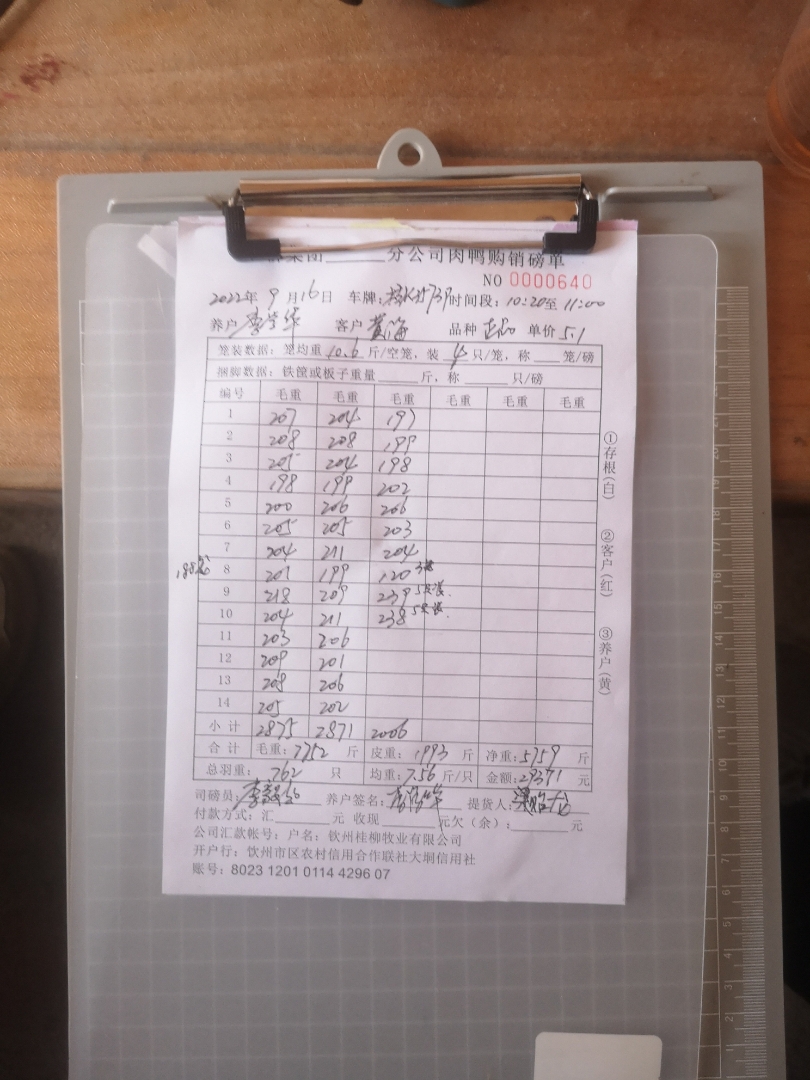 集团______分公司肉鸭购销磅单
NO 0000640
2022年 9 月 16 日 车牌: 时间段: 10:20至 11:00
养户 李 华 客户 黄海 品种 正品 单价 5.1
笼装数据: 笼均重 10.6 斤/空笼, 装 4 只/笼, 称 ___ 笼/磅
捆脚数据: 铁筐或板子重量 _____ 斤, 称 _____ 只/磅
编号 毛重 毛重 毛重 毛重 毛重 毛重
1 207 204 197
2 208 208 199
3 205 204 198
4 198 199 202
5 200 206 206
6 205 205 203
7 204 211 204
188笼 8 201 199 120 3笼
9 218 209 239 5只装
10 204 211 238 5只装
11 203 206
12 209 201
13 208 206
14 205 202
小计 2875 2871 2006
合计 毛重: 7752 斤 皮重: 1993 斤 净重: 5759 斤
总羽重: 762 只 均重: 7.56 斤/只 金额: 29371 元
司磅员: 李 养户签名: 李 华 提货人: 龙
付款方式: 汇______元 收现______元欠(余):______元
公司汇款帐号: 户名: 钦州桂柳牧业有限公司
开户行: 钦州市区农村信用合作联社大垌信用社
账号: 8023 1201 0114 4296 07
①存根(白)
②客户(红)
③养户(黄)